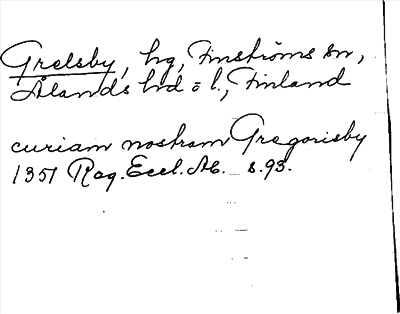 Grelsby, hg, Finströms sn,
Ålands hd o l., Finland
curiam nostram Gregorisby
1351 Reg. Eccl. Ab. s. 93.